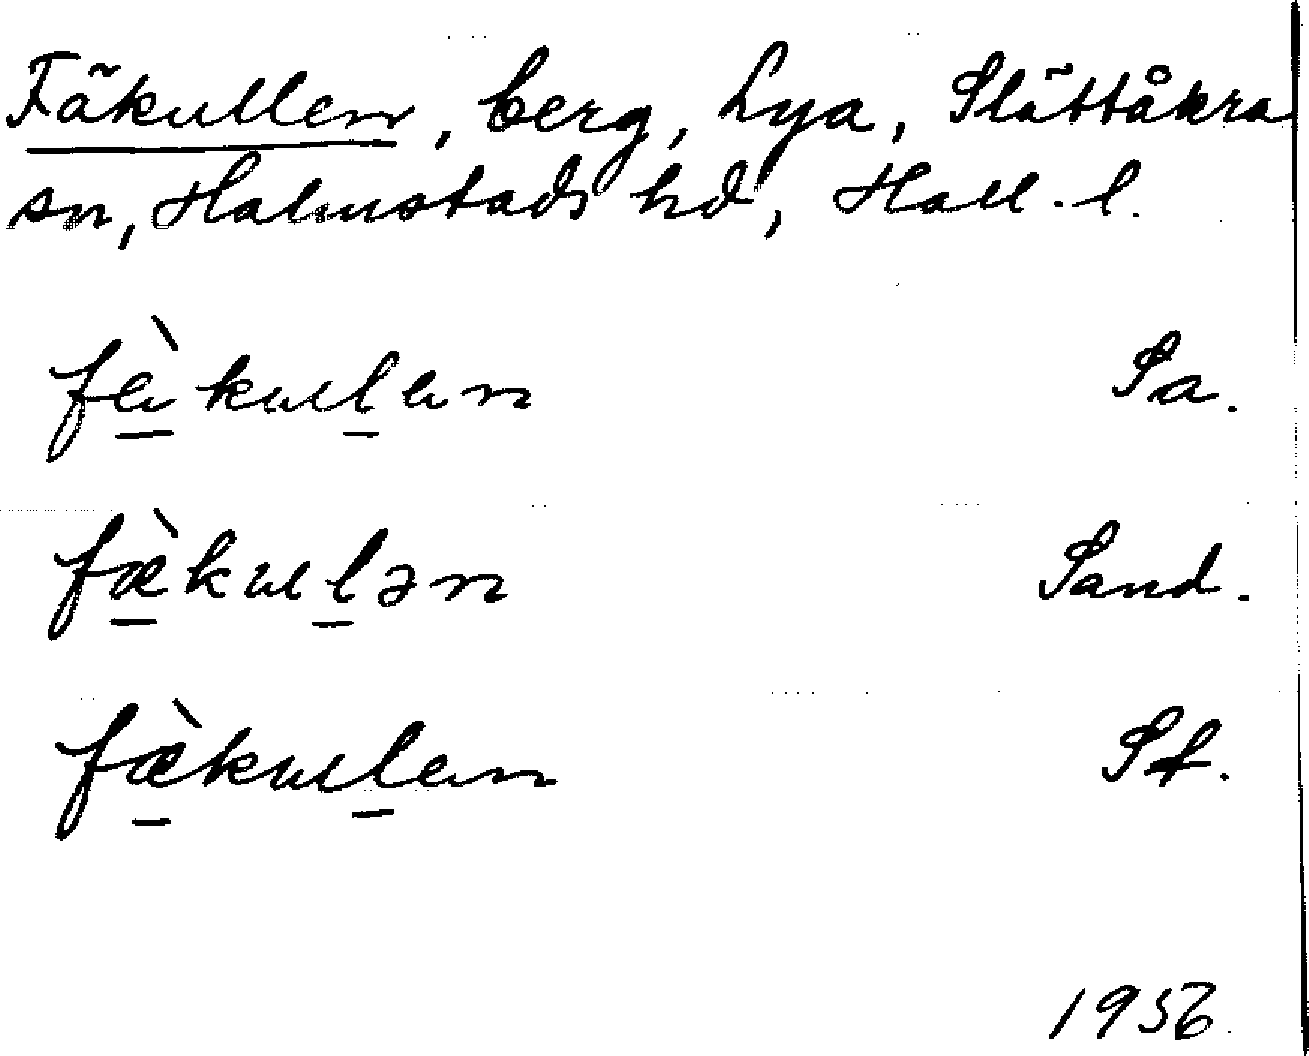 Fäkullen, berg, Lya, Slättåkra
sn, Halmstads hd, Hall. l.
fæ̀kulen Sa.
fæ̀kulən Sand.
fæ̀kulen Sf.
1956